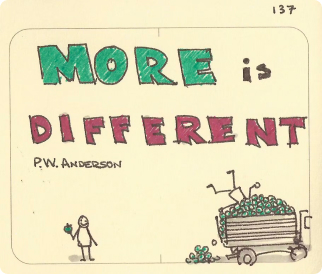 137
MORE is
DIFFERENT
P.W. ANDERSON